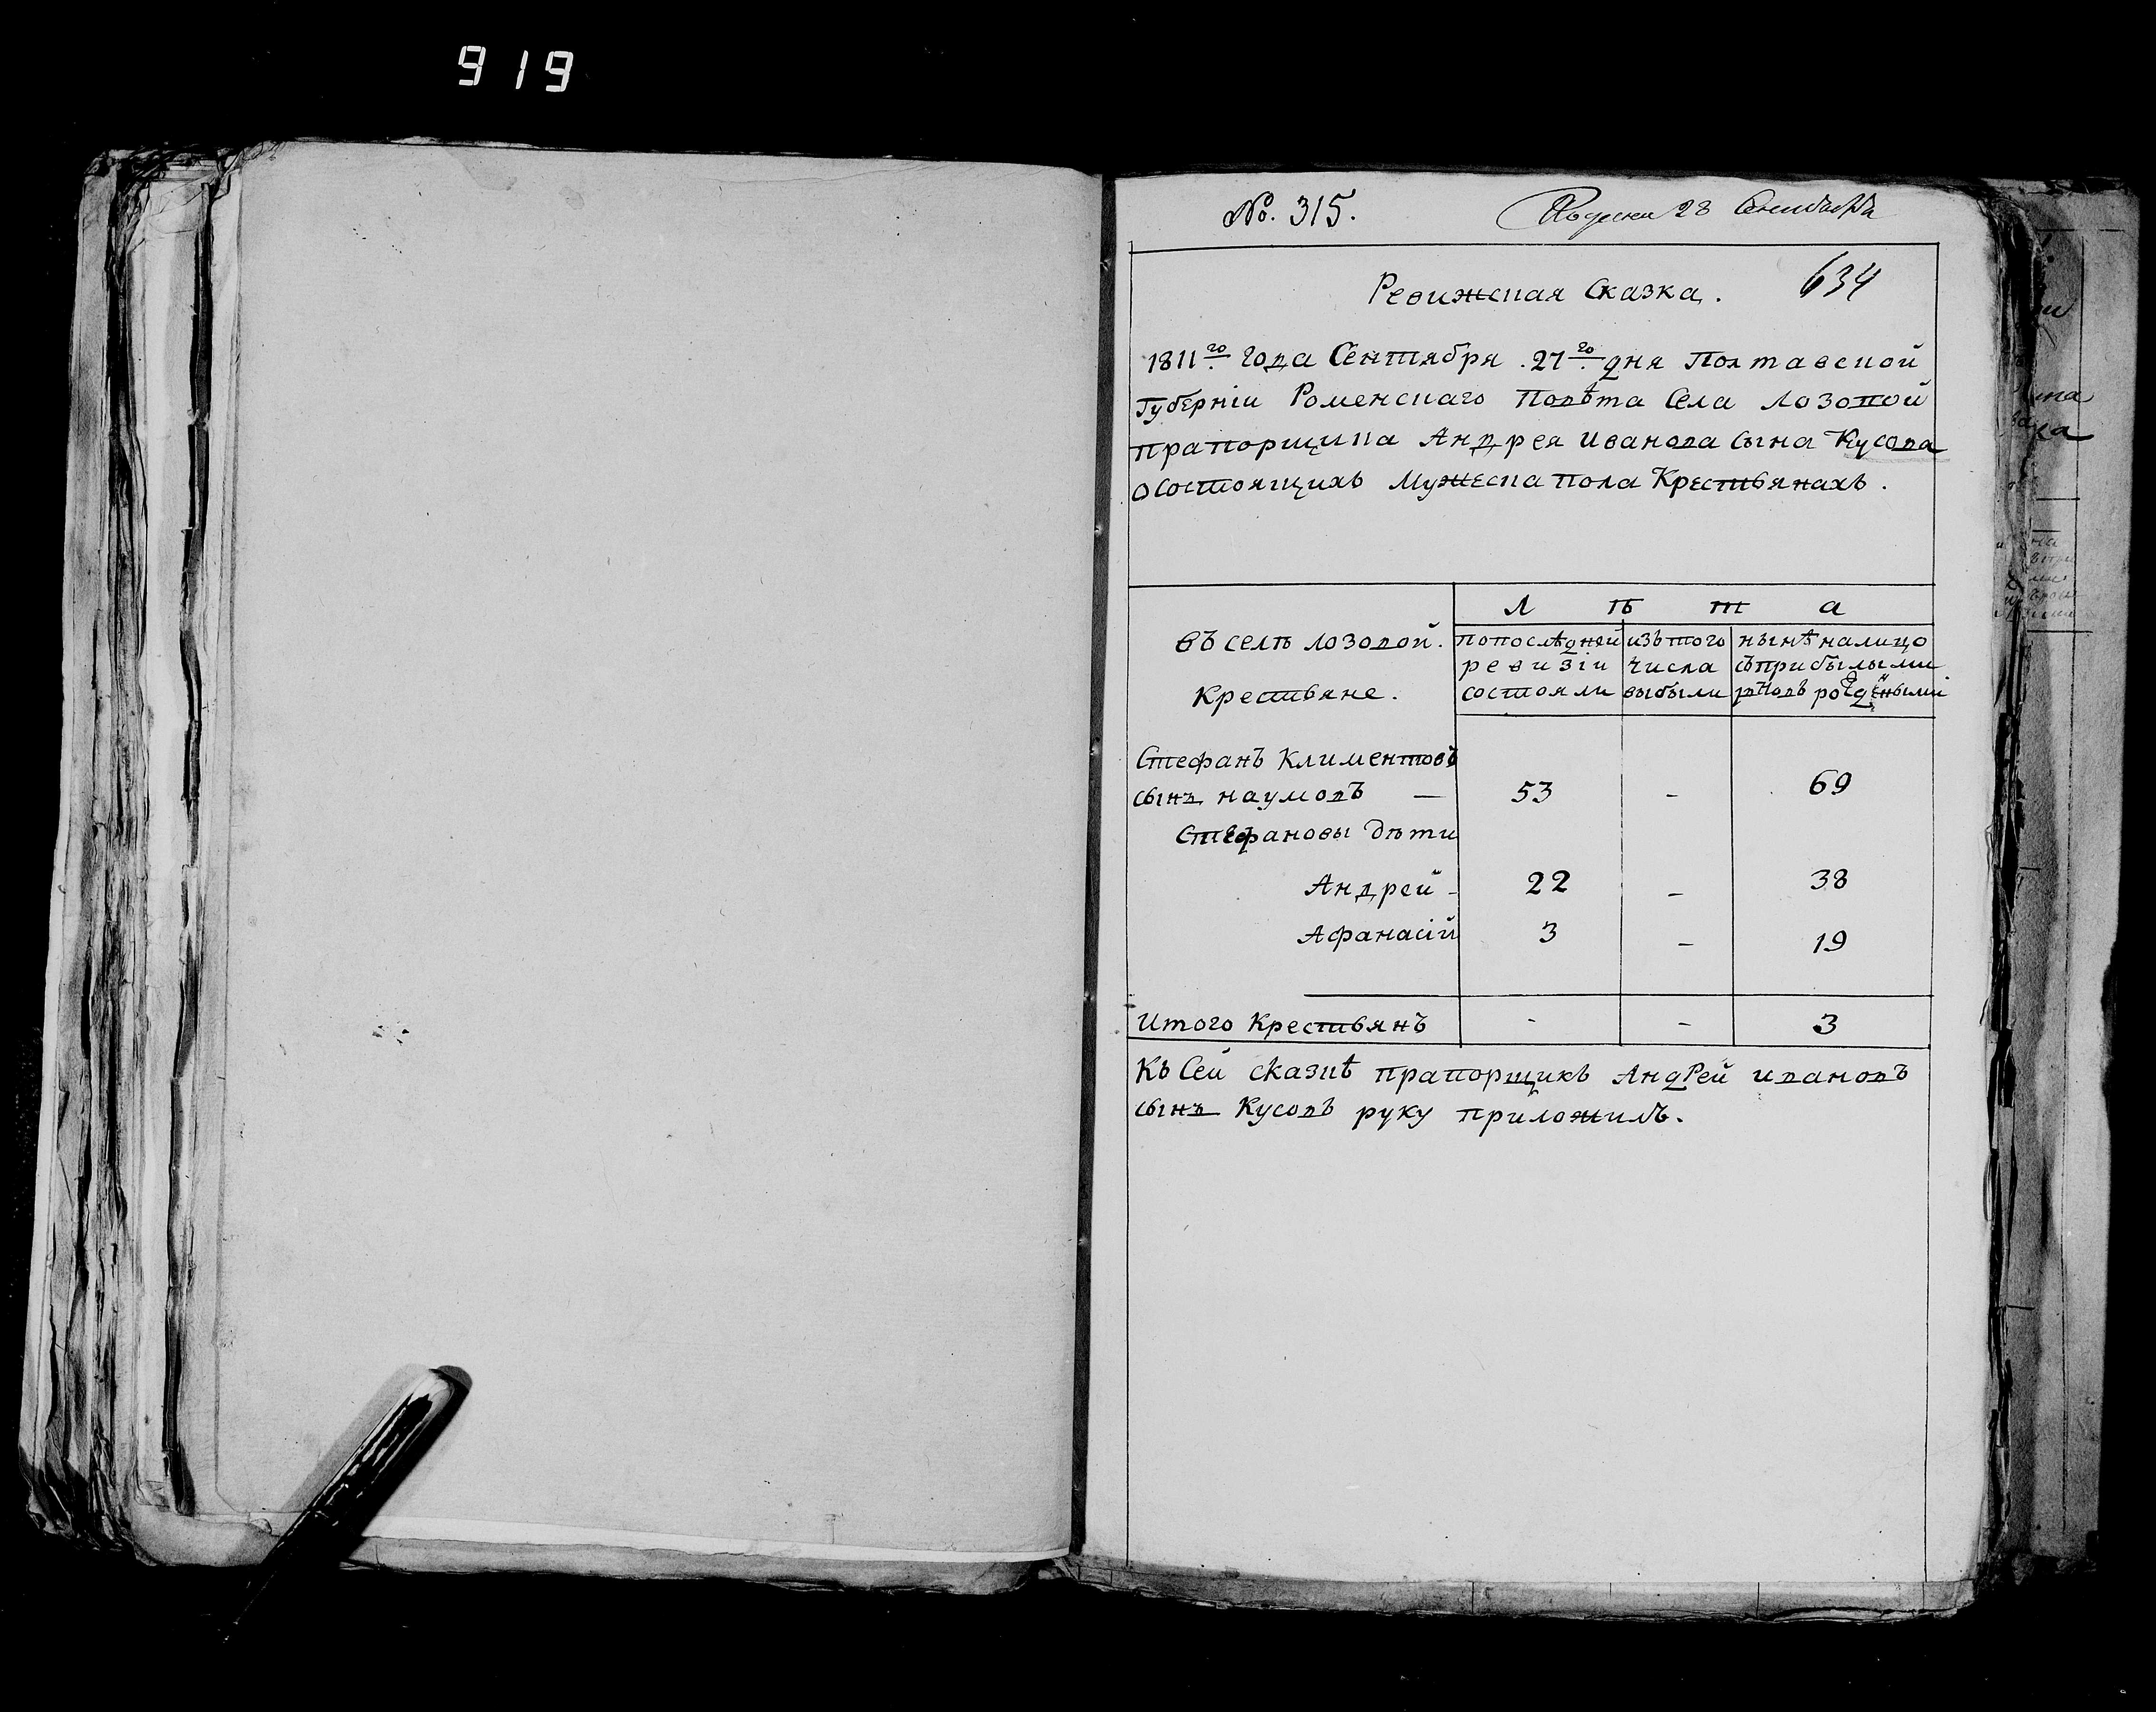 919
№. 315.
28 Сентября
634
Ревижская Сказка.
1811го года Сентября 27го дня Полтавской
Губернiи Роменскаго Повѣта Села Лозовой
прапорщика Андрея Иванова сына Кусова
о состоящихъ Мужеска пола Крестьянахъ.
Л ѣ т а
въ селѣ Лозовой.
Крестьяне.
по послѣдней ревизiи состояли
изъ того числа выбыли
нынѣ на лицо съ прибылыми и вновь рожденными
Стефанъ Климентовъ
сынъ наумовъ — 53 - 69
Стефановы дѣти
Андрей - 22 - 38
Афанасiй 3 - 19
Итого Крестьянъ - - 3
Къ Сей сказкѣ прапорщикъ Андрей ивановъ
сынъ Кусовъ руку приложилъ.